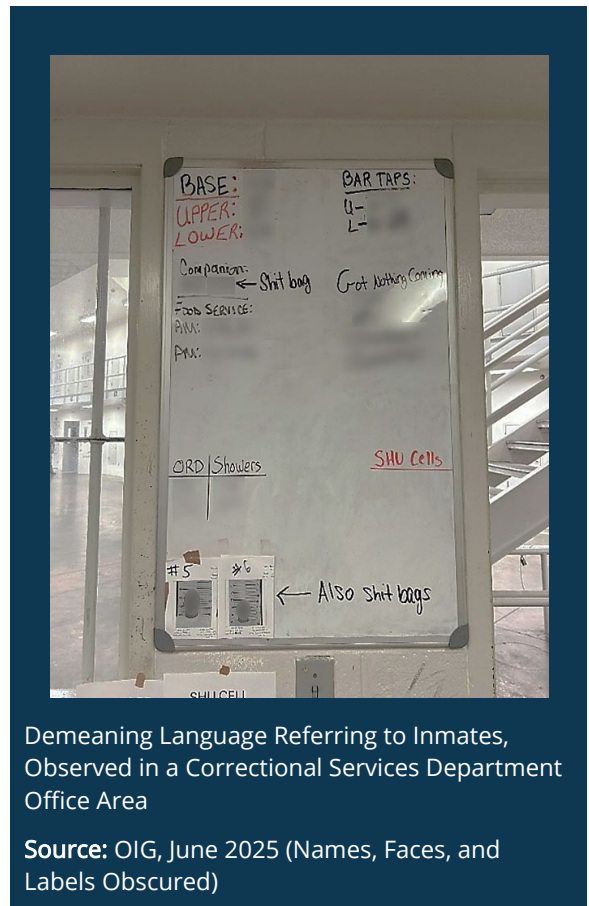 BASE:
UPPER:
LOWER:
BAR TAPS:
U-
L-
Companion:
← Shit bag
Got Nothing Coming
FOOD SERVICE:
AM:
PM:
ORD | Showers
SHU Cells
#5
#6
← Also shit bags
SHU CELL
Demeaning Language Referring to Inmates,
Observed in a Correctional Services Department
Office Area
Source: OIG, June 2025 (Names, Faces, and
Labels Obscured)